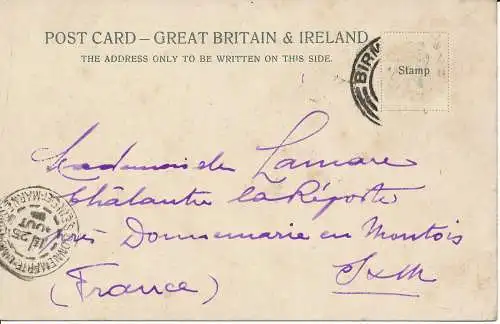 POST CARD – GREAT BRITAIN & IRELAND
THE ADDRESS ONLY TO BE WRITTEN ON THIS SIDE.
BIRM
Stamp
Mademoiselle Lamare
Châlautre la Réposte
près Donnemarie en Montois
SxM
(France)
25